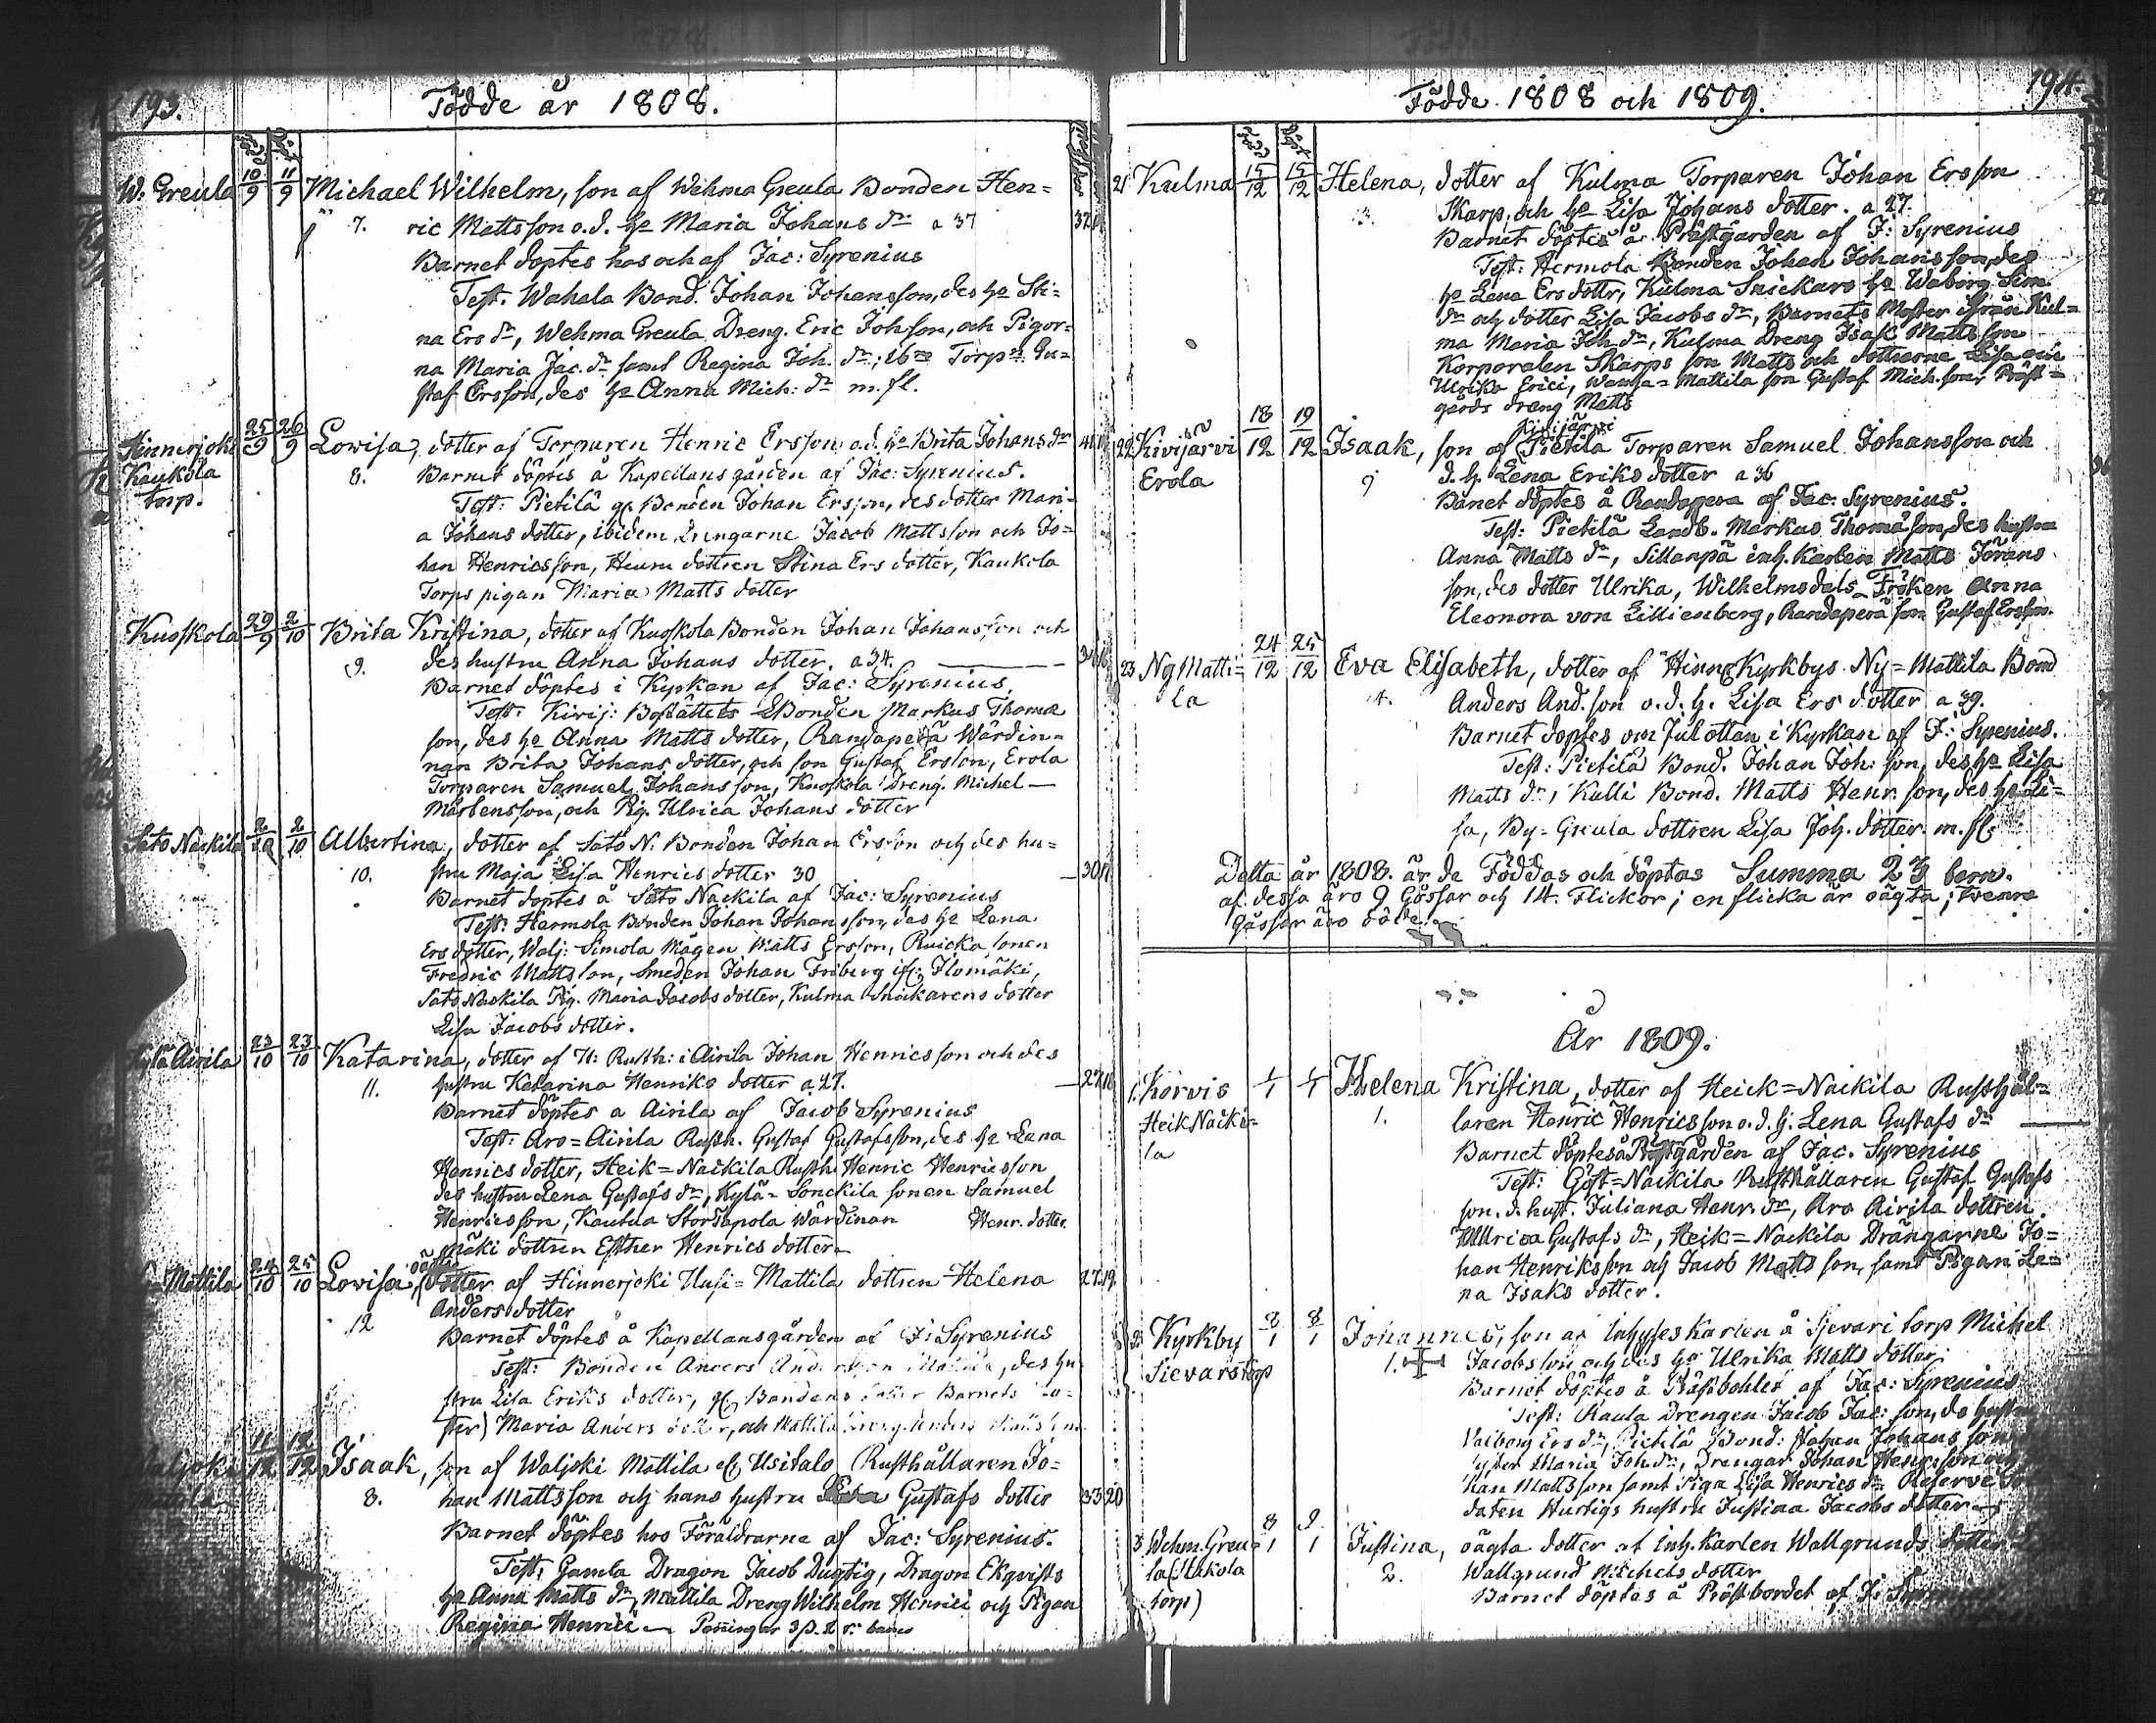 193.
Födde år 1808.
W. Greula 10/9 11/9 Michael Wilhelm, son af Wehma Greula Bonden Hen=
7. ric Mattsson o.d. ha Maria Johans dr a 37
Barnet döptes hos och af Jac: Syrenius
Test. Wahala Bond. Johan Johansson, des ha Sti=
na Ers dr, Wehma Greula Dreng. Eric Johsson, och Pigor=
na Maria Jac. dr samt Regina Joh. dr; Torp. Gu=
staf Ersson, des ha Anna Mich: dr m.fl.
Hinnerjoki 25/9 26/9 Lowisa, dotter af Torparen Henric Ersson o.d. ha Brita Johans dr
Kaukola 8. Barnet döptes å Kapellans gården af Jac: Syrenius.
torp. Test: Pietilä Bonden Johan Ersson, des dotter Mari=
a Johans dotter, ibidem Drengarne Jacob Mattsson och Jo=
han Henricsson, dottren Stina Ers dotter, Kaukola
Torps pigan Maria Matts dotter
Kuoskola 29/9 2/10 Brita Kristina, dotter af Kuoskola Bonden Johan Johansson och
9. des hustru Anna Johans dotter. a 34.
Barnet döptes i Kyrkan af Jac: Syrenius.
Test: Kivij: Boställets Bonden Markus Thomæ
son, des ha Anna Matts dotter, Randaperä Wärdin=
nan Brita Johans dotter, och son Gustaf Ersson, Erola
Torparen Samuel Johansson, Kuoskola Dreng. Michel
Mårtensson, och Pig. Ulrica Johans dotter
Sato Nackila 2/10 Albertina, dotter af Sato N. Bonden Johan Ersson och des hu=
10. stru Maja Lisa Henrics dotter 30
Barnet döptes å Sato Nackila af Jac: Syrenius
Test: Hermola Bonden Johan Johansson, des ha Lena
Ers dotter, Walj: Simola Mågen Matts Ersson, Ruicka sonen
Fredric Mattsson, Smeden Johan Friberg Ilomäki,
Sato Nackila Pig. Maria Jacobs dotter, Kulma Snickarens dotter
Lisa Jacobs dotter.
Airila 23/10 23/10 Katarina, dotter af Rusth: i Airila Johan Henricsson och des
11. hustru Katarina Henriks dotter a 27.
Barnet döptes a Airila af Jacob Syrenius
Test: Aro=Airila Rusth. Gustaf Gustafsson, des ha Lena
Henrics dotter, Heik=Nackila Rusth Henric Henricsson
des hustru Lena Gustafs dr, Kylä=Sonckila sonen Samuel
Henricsson, Kautua Wärdinan Henr. dotter
mäki dottren Esther Henrics dotter
Mattila 24/10 25/10 Lowisa, oägta dotter af Hinnerjoki Uusi=Mattila dottren Helena
Anders dotter
12 Barnet döptes å Kapellansgården af J: Syrenius
Test: Bonden Anders des hu
stru Lisa Eriks dotter, Bondens Barnets
Maria Anders dotter, och Mattila
11/12 12/12 Isaak, son af Waljoki Mattila Usitalo Rusthållaren Jo=
8. han Mattsson och hans hustru Gustafs dotter 33 20
Barnet döptes hos Föräldrarne af Jac: Syrenius.
Test: Gamla Dragon Jacob Dugtig, Dragon Ekqvists
ha Anna Matts dr, Mattila Dreng Wilhelm Henrici och Pigan
Regina Henrici
194.
Födde 1808 och 1809.
21 Kulma 15/12 15/12 Helena, dotter af Kulma Torparen Johan Ersson
13. Skarp, och ha Lisa Johans dotter. a 27.
Barnet döptes å Prästgården af J: Syrenius
Test: Hermola Bonden Johan Johansson, des
ha Lena Ers dottr, Kulma Snickars ha Waborg Sim.
dr och dotter Lisa Jacobs dr, Barnets Moster ifrån Kul=
ma Maria Joh dr, Kulma Dreng Isak Mattsson
Korporalen Skarps son Matts och döttrarne Lisa och
Ulrika Erici, Mattila son Gustaf Mich.son, Präst=
gårds dreng Matts
22 Kivijärvi 18/12 19/12 Isaak, son af Kivijärvi Pietilä Torparen Samuel Johansson och
Erola 9 d. h. Lena Eriks dotter a 36
Barnet döptes å Randapera af Jac: Syrenius.
Test: Pietilä Landb. Markus Thomäson, des hustru
Anna Matts dr, Sillanpä inh. Karlen Matts Jörans
son, des dotter Ulrika, Wilhelmsdals Fröken Anna
Eleonora von Lillienberg, Randaperä son Gustaf Ersson.
23 Ny Matti= 24/12 25/12 Eva Elisabeth, dotter af Hinn. Kyrkbys Ny=Mattila Bond
la 14. Anders And.son o.d.h. Lisa Ers dotter a 39.
Barnet döptes om Julottan i Kyrkan af J: Syrenius.
Test: Pietilä Bond. Johan Joh:son, des ha Lisa
Matts dr, Kulli Bond. Matts Henr.son, des ha Li=
sa, By=Greula dottren Lisa Joh. dotter m.fl.
Detta år 1808. är de Föddas och döptas Summa 23 barn.
af dessa äro 9 Gossar och 14. Flickor; en flicka är oägta; trenne
Gossar äro döde.
År 1809.
1. Korvis 4/1 4/1 Helena Kristina, dotter af Heick=Nackila Rusthål=
Heik Nacki= 1. laren Henric Henricsson o.d.h. Lena Gustafs dr
la Barnet döptes å Prästgården af Jac. Syrenius
Test: Göst=Nackila Rusthållaren Gustaf Gustafs
son, d. hust. Juliana Henr. dr, Aro Airila dottren
Ullrica Gustafs dr, Heik=Nackila Drängarne Jo=
han Henriksson och Jacob Matts son, samt Pigan Le=
na Isaks dotter.
2. Kyrkby 8/1 8/1 Johannes, son af Inhyses Karlen å Sjevari torp Michel
Sievars torp 1. Jacobsson och des ha Ulrika Matts dotter
Barnet döptes å Präsbohlet af Jac: Syrenius
Test: Kaula Drengen Jacob Jac: son, ds hustru
Valborg Ers dr, Pietilä Bond: Johan Johans son
Maria Joh dr, Drengar Johan Henricsson och
han Mattsson samt Piga Lisa Henrics dr Reserve
daten Hurtigs hustru Justina Jacobs dotter
3 Wehm. Greu= 8/1 9/1 Justina, oägta dotter af Inh. Karlen Wallgrunds dotter
la (Stakola 2. Wallgrund Michels dotter
torp) Barnet döptes å Prästbordet af J: